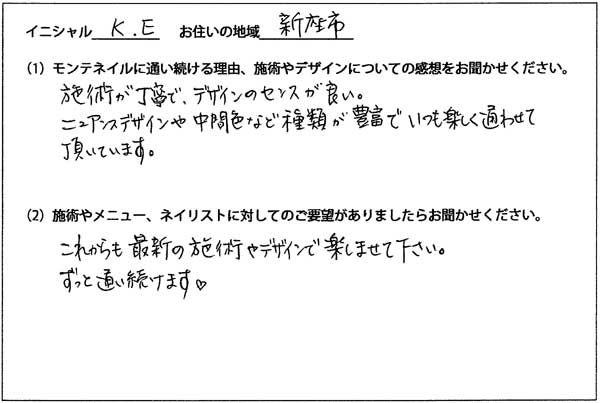 イニシャル K.E お住いの地域 新座市
(1) モンテネイルに通い続ける理由、施術やデザインについての感想をお聞かせください。
施術が丁寧で、デザインのセンスが良い。
ニュアンスデザインや中間色など種類が豊富でいつも楽しく通わせて
頂いています。
(2) 施術やメニュー、ネイリストに対してのご要望がありましたらお聞かせください。
これからも最新の施術やデザインで楽しませて下さい。
ずっと通い続けます♡